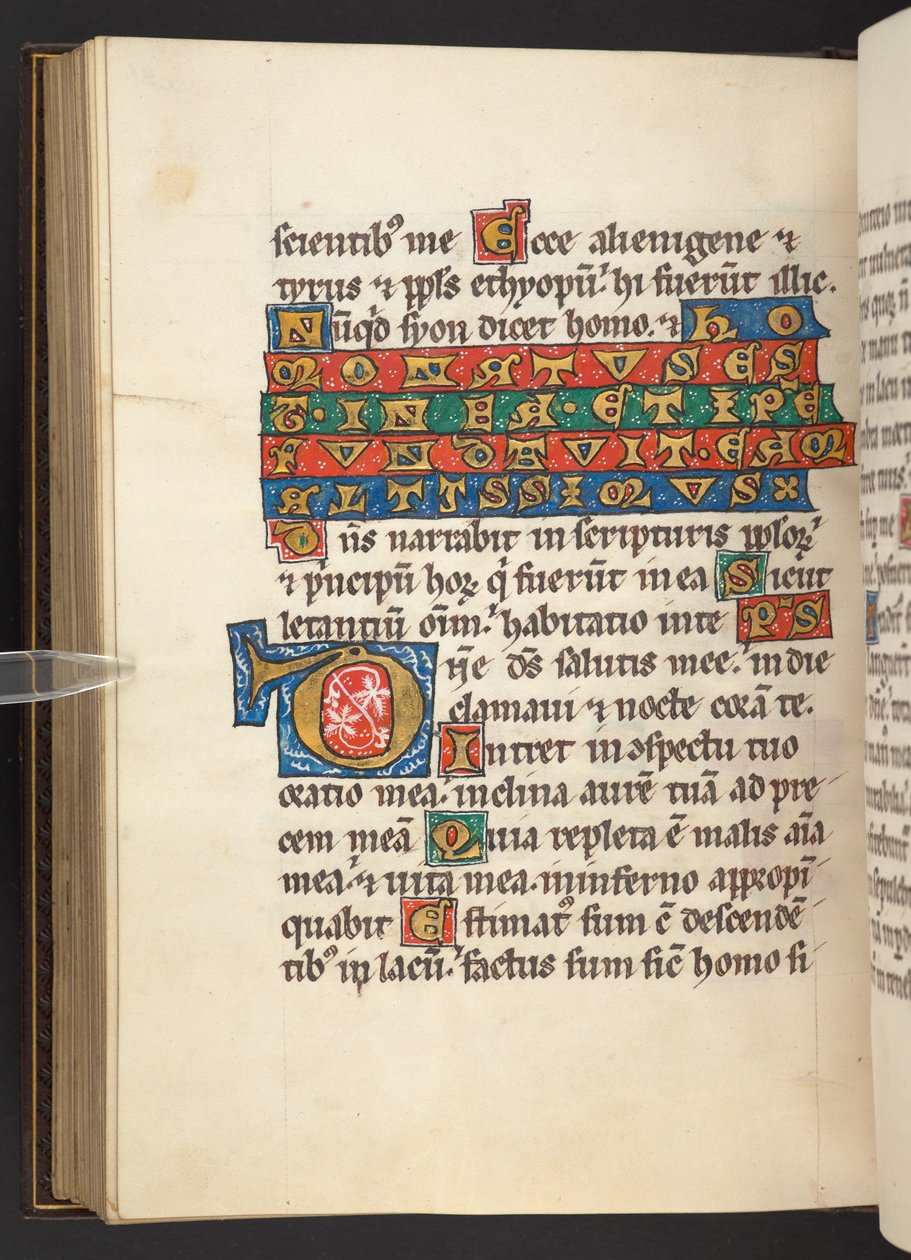 scientib᾽ me Ecce alienigene ⁊
tyrus ⁊ ppls ethyopū. hi fuerūt illic.
Nūqd syon dicet homo. ⁊ ho
mo natus es
t. in ea. et ip̄e
fundavit. eam
altissimus
Dn̄s narrabit in scripturis pploꝝ
⁊ pͥncipū hoꝝ qͥ fuerūt in ea Sicut
letantiū oīm. habitatio in te ps
Dn̄e ds̄ salutis mee. in die
clamaui ⁊ nocte corā te.
Intret in ↄspectu tuo
oratio mea. inclina aurē tuā ad pre
cem meā Quia repleta ē malis aīa
mea. ⁊ uita mea. in inferno appropī
quabit Estimat᾽ sum c̄ descendē
tib᾽ in lacū. factus sum sic̄ homo si